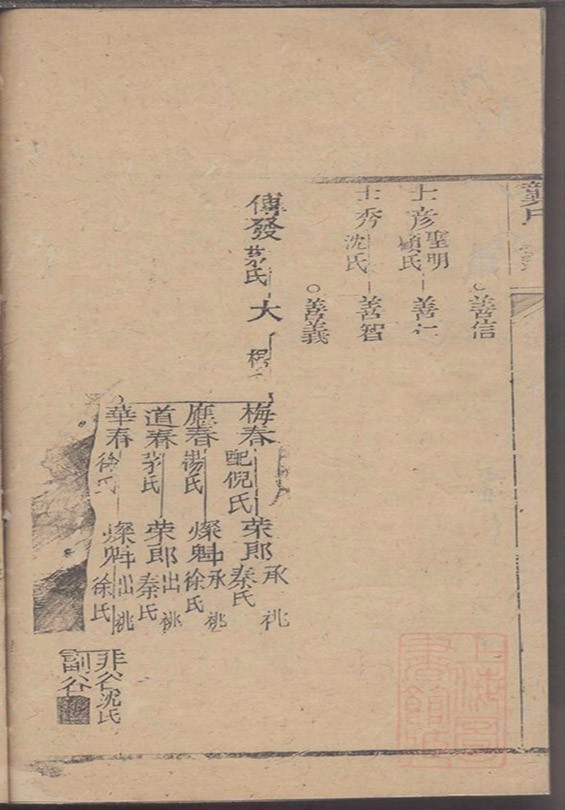 善信
士彥 聖明 顧氏 善仁
士秀 沈氏 善智
善義
傅發 茅氏 大
梅春 配倪氏 荣郎 秦氏 承祧
應春 湯氏 燦魁 徐氏 承祧
道春 茅氏 荣郎 秦氏 出祧
華春 徐氏 燦魁 徐氏 出祧
非谷 沈氏
副谷